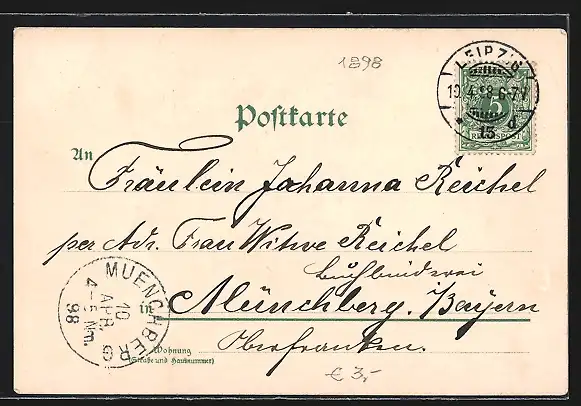 1898
LEIPZIG
10.4.98.6-7V
* 13 d
5
REICHSPOST
Postkarte
An
Fräulein Johanna Reichel
per Adr. Frau Witwe Reichel
Buchbinderei
in Münchberg. Bayern
Oberfranken.
MUENCHBERG
10
APR.
4-5 Nm.
98
Wohnung
(Straße und Hausnummer)
€ 3,-